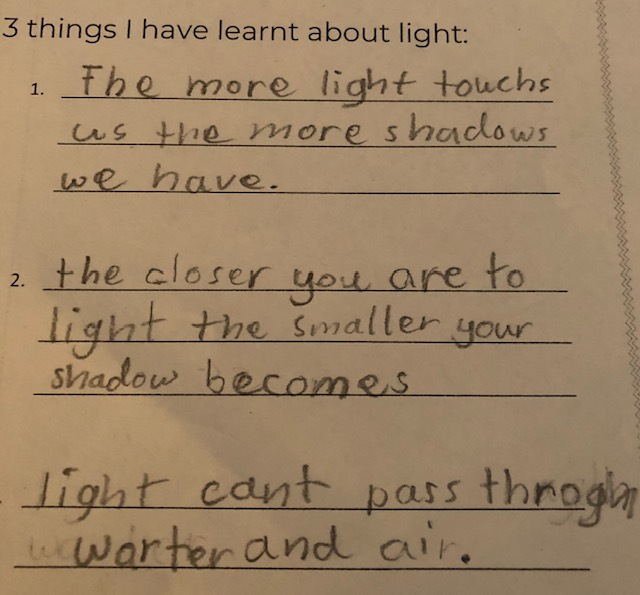 3 things I have learnt about light:
1. The more light touchs
us the more shadows
we have.
2. the closer you are to
light the smaller your
shadow becomes
light cant pass throgh
warter and air.